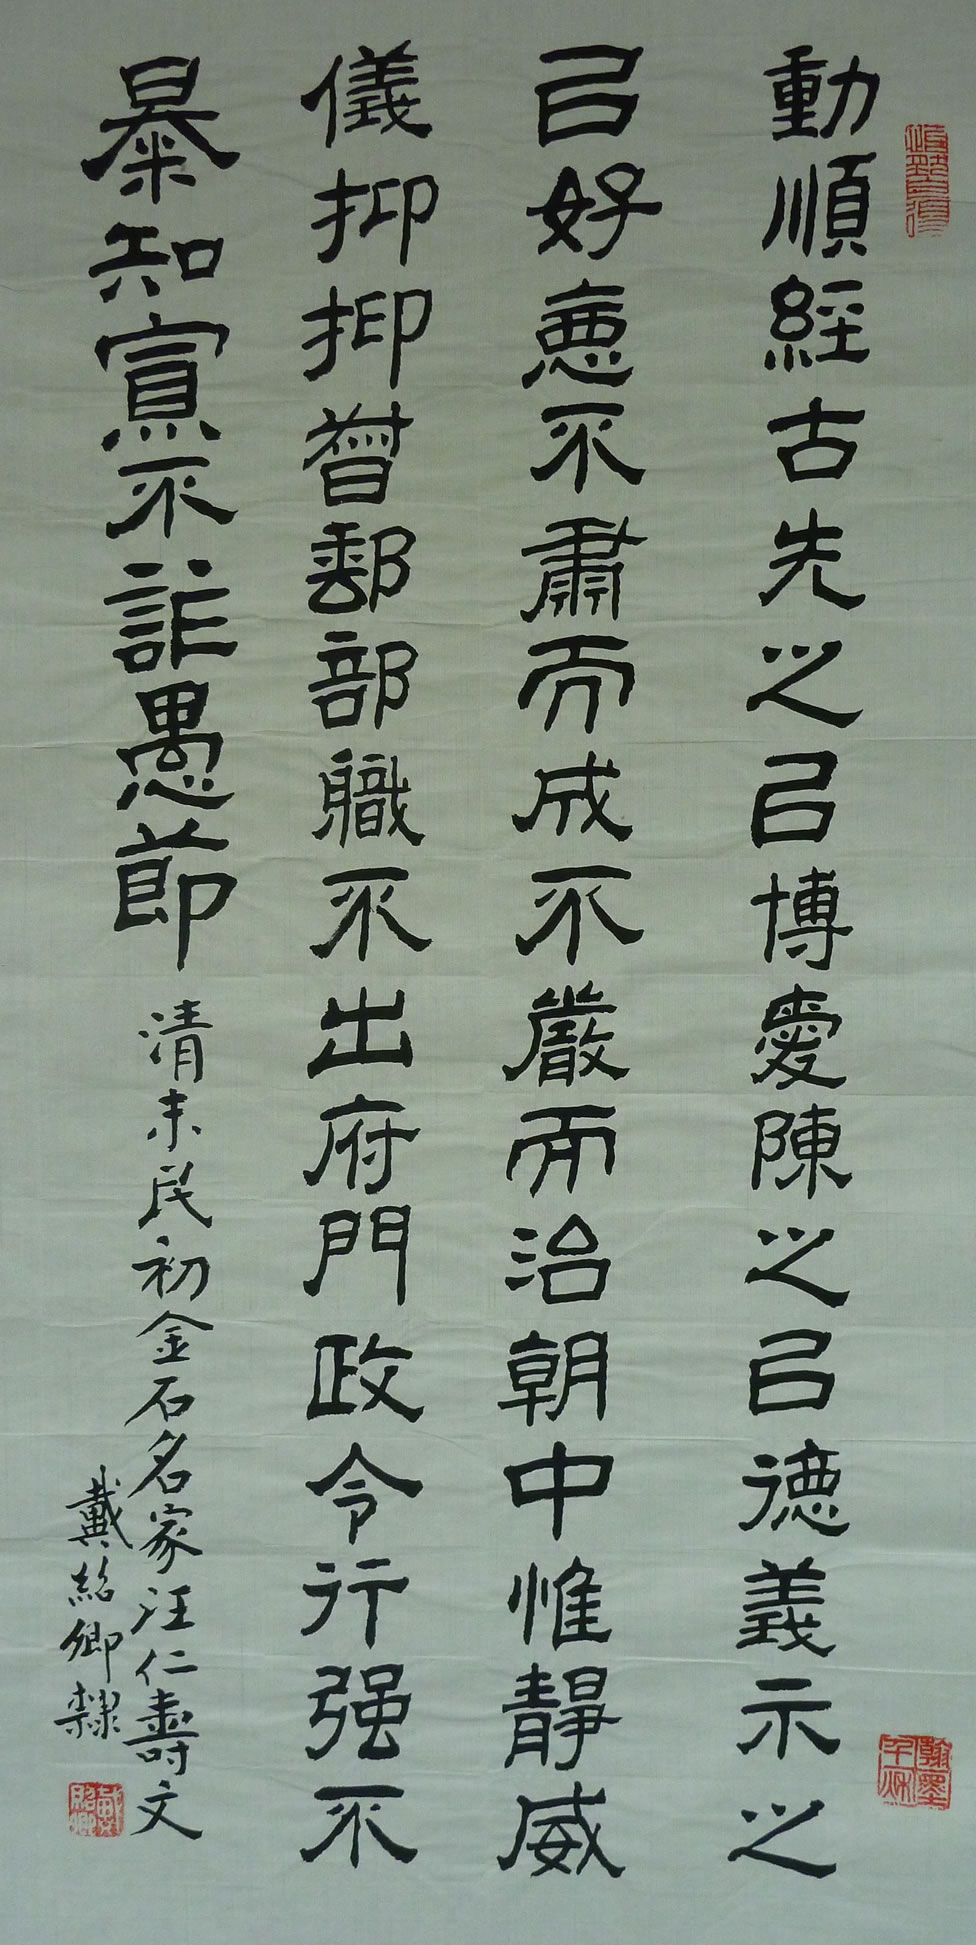 動順經古先之㠯博愛陳之㠯德義示之
㠯好惡不肅而成不嚴而治朝中惟靜威
儀抑抑督郵部職不出府門政令行强不
暴知寡不詐愚節
清末民初金石名家汪仁壽文
戴紹卿隸
戴紹卿
翰墨千秋